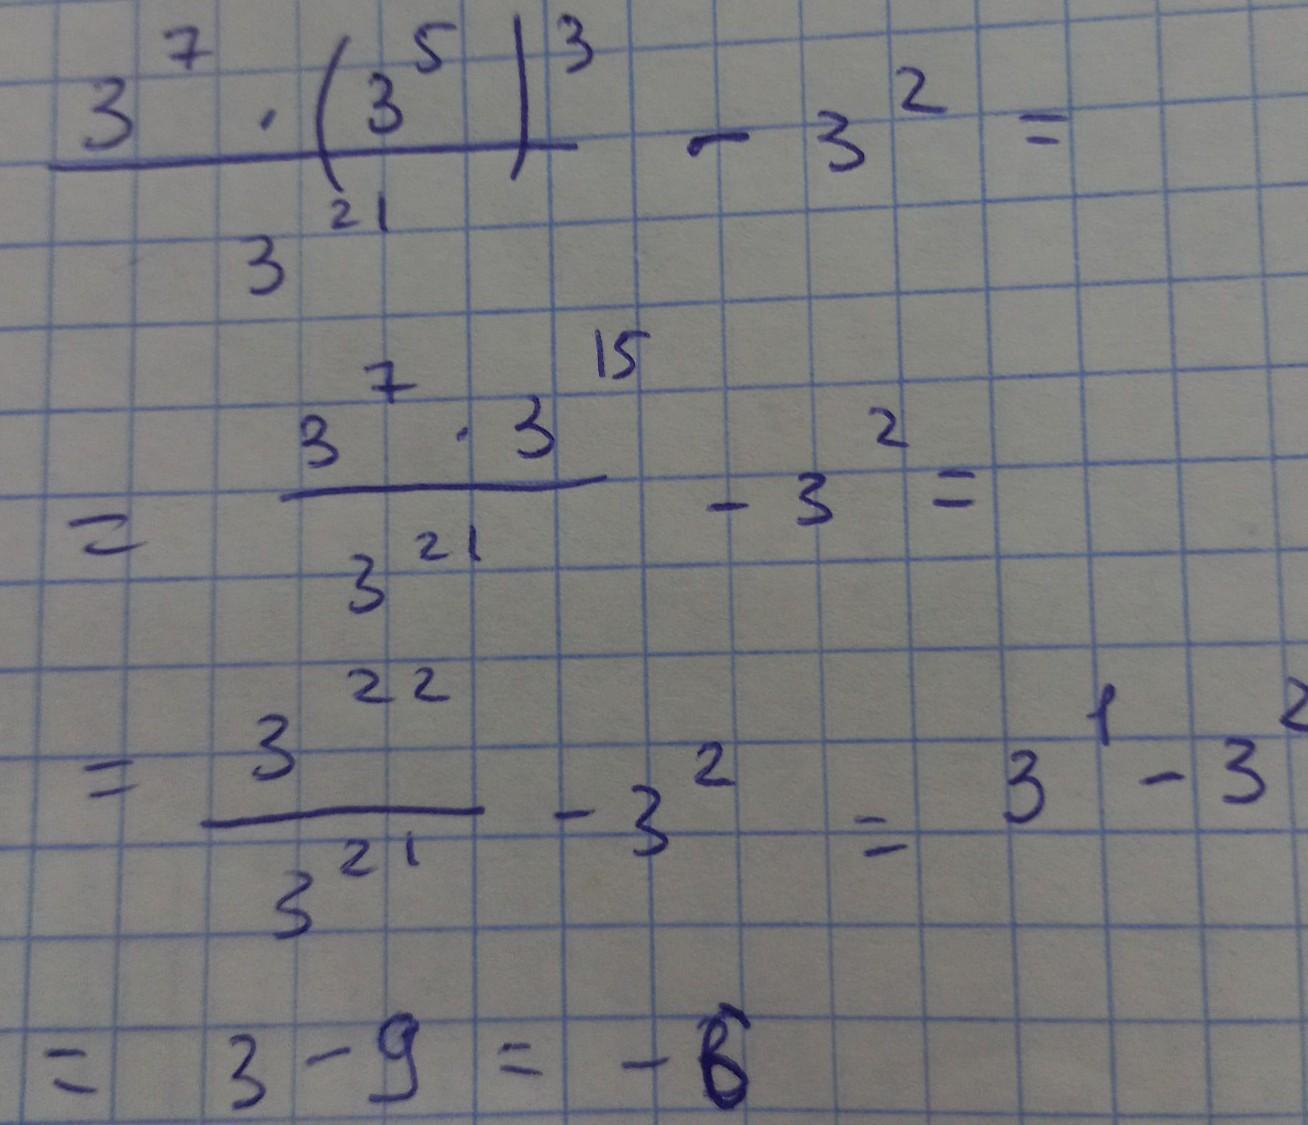 3^7 · (3^5)^3 / 3^21 - 3^2 =
= 3^7 · 3^15 / 3^21 - 3^2 =
= 3^22 / 3^21 - 3^2 = 3^1 - 3^2
= 3 - 9 = - 6